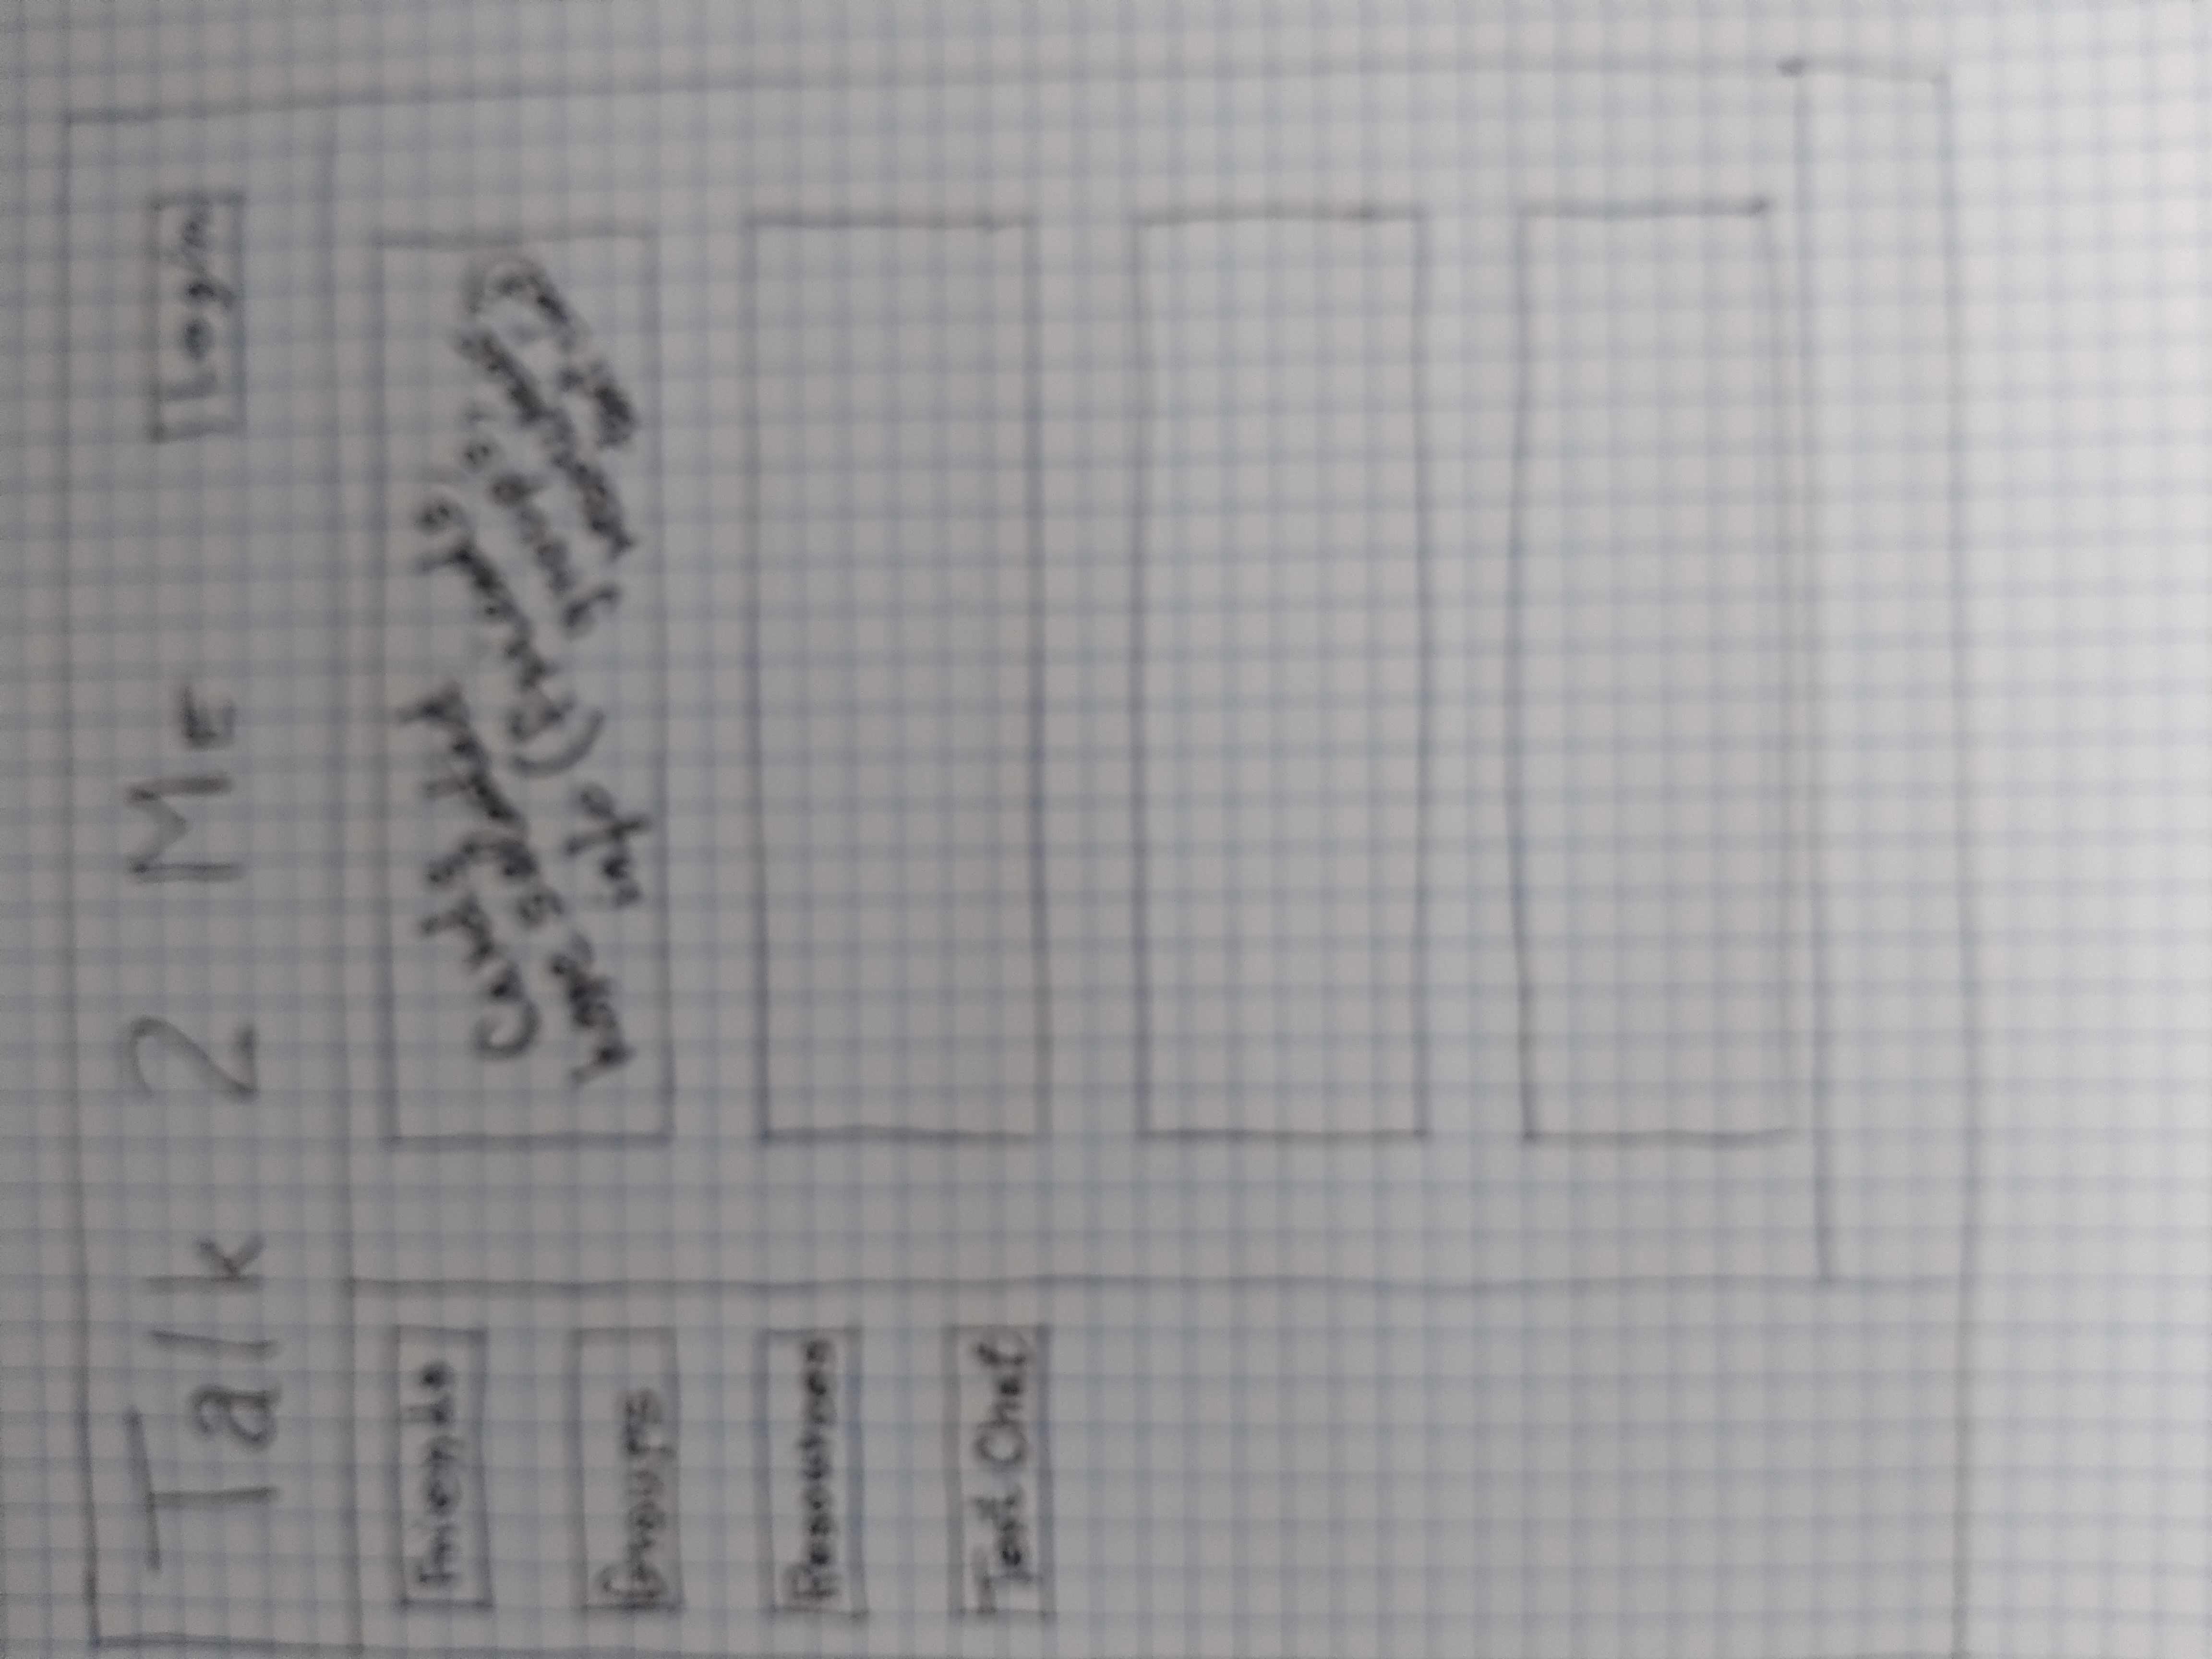 Talk 2 Me
Login
Friends
Groups
Resources
Text Chat
Cards
have selected
info (Friends,
groups,
resources,
text chat)